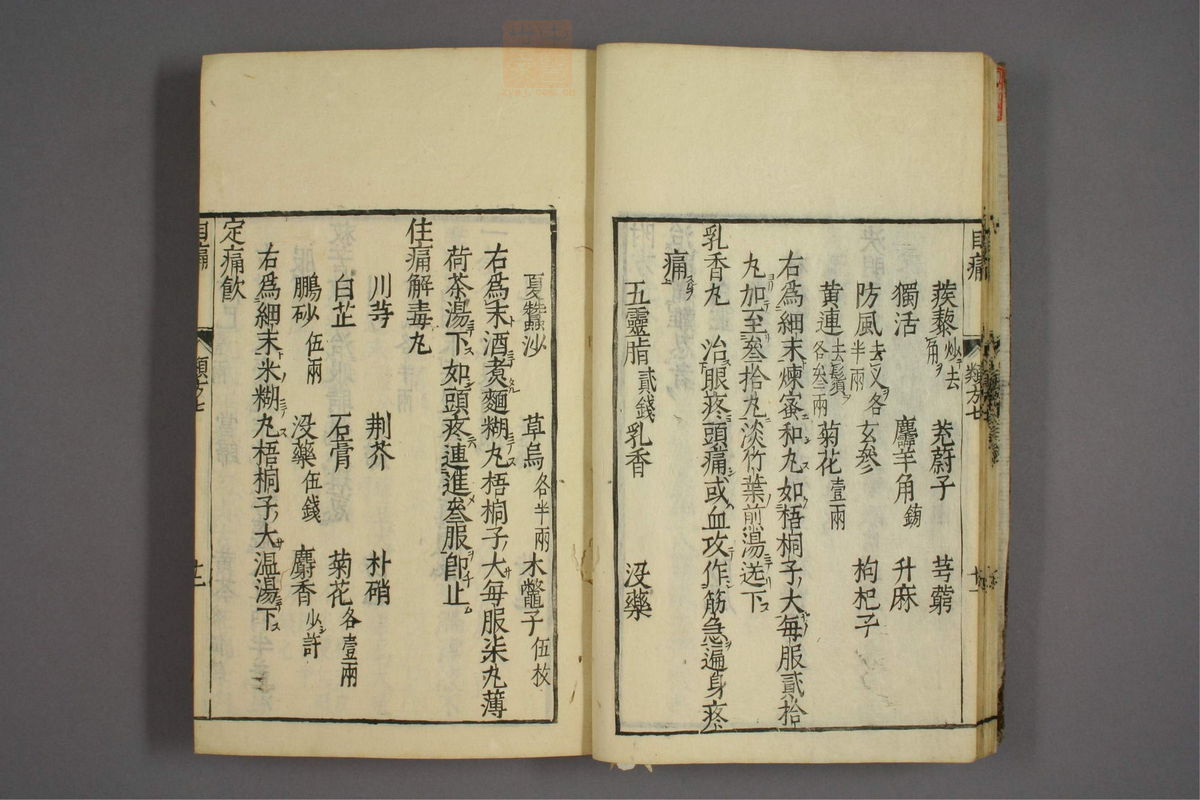 目痛 類方七 廿一
蒺藜炒去角 茺蔚子 芎藭
獨活 麢羊角鎊 升麻
防風去叉各半兩 玄參 枸杞子
黄連去鬚各叁兩 菊花壹兩
右爲細末煉蜜和丸如梧桐子大每服貳拾
丸加至叁拾丸淡竹葉煎湯送下
乳香丸 治眼疼頭痛或血攻作筋急遍身疼
痛
五靈脂貳錢 乳香 没藥
夏蠶沙 草烏各半兩 木鼈子伍枚
右爲末酒煑麵糊丸梧桐子大每服柒丸薄
荷茶湯下如頭疼連進叁服即止
住痛解毒丸
川芎 荆芥 朴硝
白芷 石膏 菊花各壹兩
鵬砂伍兩 没藥伍錢 麝香少許
右爲細末米糊丸梧桐子大温湯下
定痛飲
目痛 類方七
zyej.com.cn